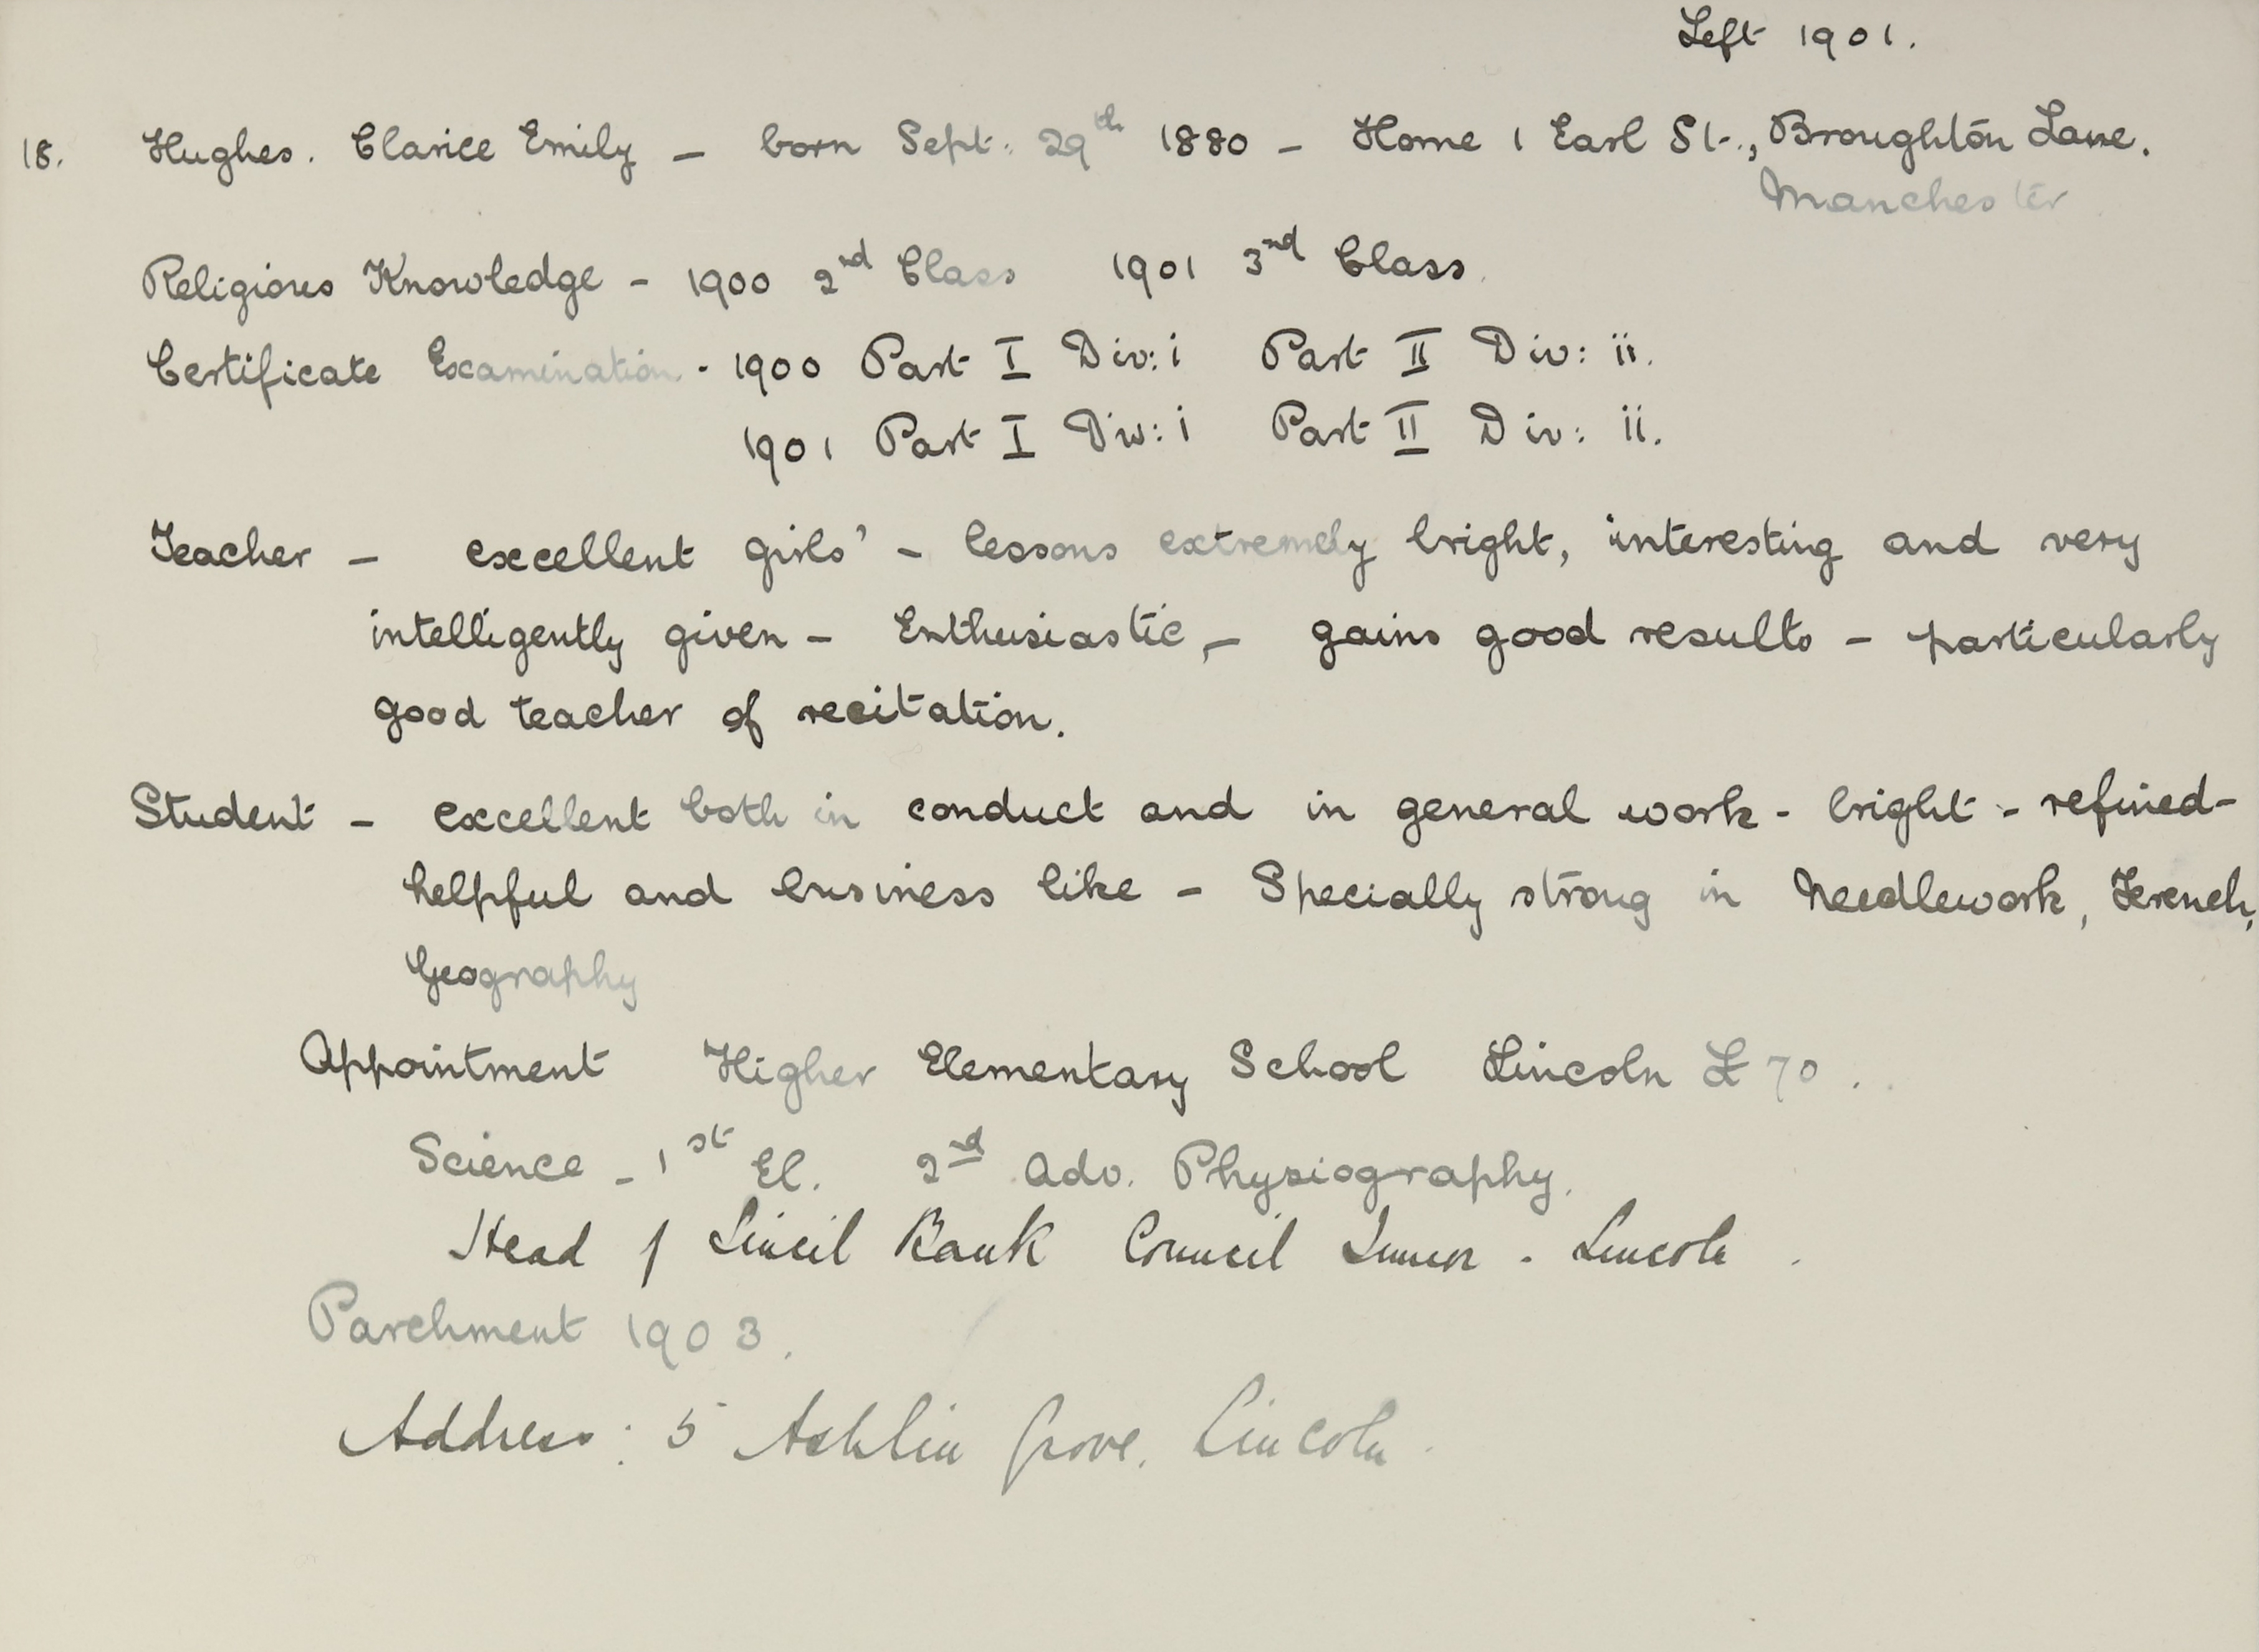 Left 1901.
18. Hughes. Clarice Emily – born Sept. 29th 1880 – Home 1 Earl St., Broughton Lane.
Manchester
Religious Knowledge – 1900 2nd Class 1901 3rd Class.
Certificate Examination. 1900 Part I Div: i Part II Div: ii.
1901 Part I Div: i Part II Div: ii.
Teacher – excellent girls' – lessons extremely bright, interesting and very
intelligently given – Enthusiastic, – gains good results – particularly
good teacher of recitation.
Student – excellent both in conduct and in general work – bright – refined –
helpful and business like – Specially strong in Needlework, French,
Geography
Appointment Higher Elementary School Lincoln £70.
Science – 1st El. 2nd Adv. Physiography.
Head of Sincil Bank Council Junior. Lincoln.
Parchment 1903.
Address: 5 Ashlin Grove, Lincoln.